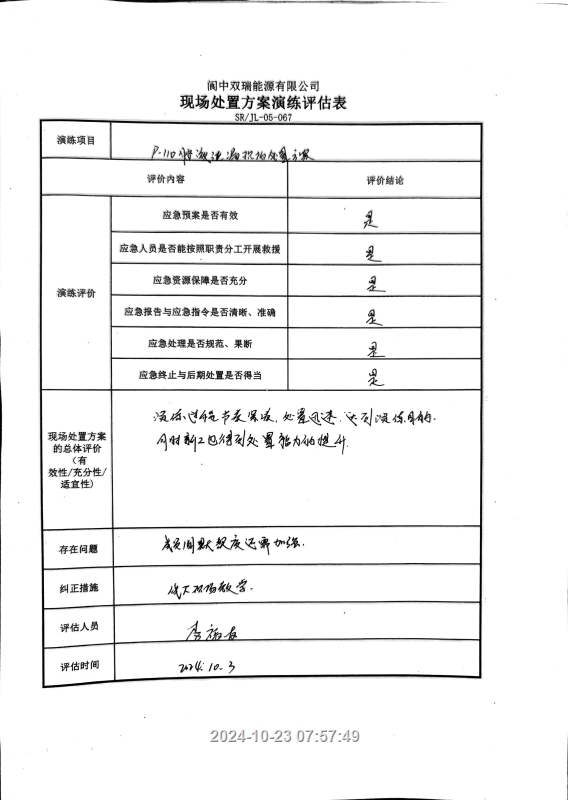 阆中双瑞能源有限公司
现场处置方案演练评估表
SR/JL-05-067
演练项目
P-110 泄漏现场处置方案
评价内容
评价结论
演练评价
应急预案是否有效
是
应急人员是否能按照职责分工开展救援
是
应急资源保障是否充分
是
应急报告与应急指令是否清晰、准确
是
应急处理是否规范、果断
是
应急终止与后期处置是否得当
是
现场处置方案
的总体评价
（有
效性/充分性/
适宜性)
演练过程节奏紧凑，处置迅速，达到演练目的.
同时新工也得到处置能力的提升.
存在问题
成员间默契度还需加强.
纠正措施
现场教学.
评估人员
李
评估时间
2024.10.3
2024-10-23 07:57:49